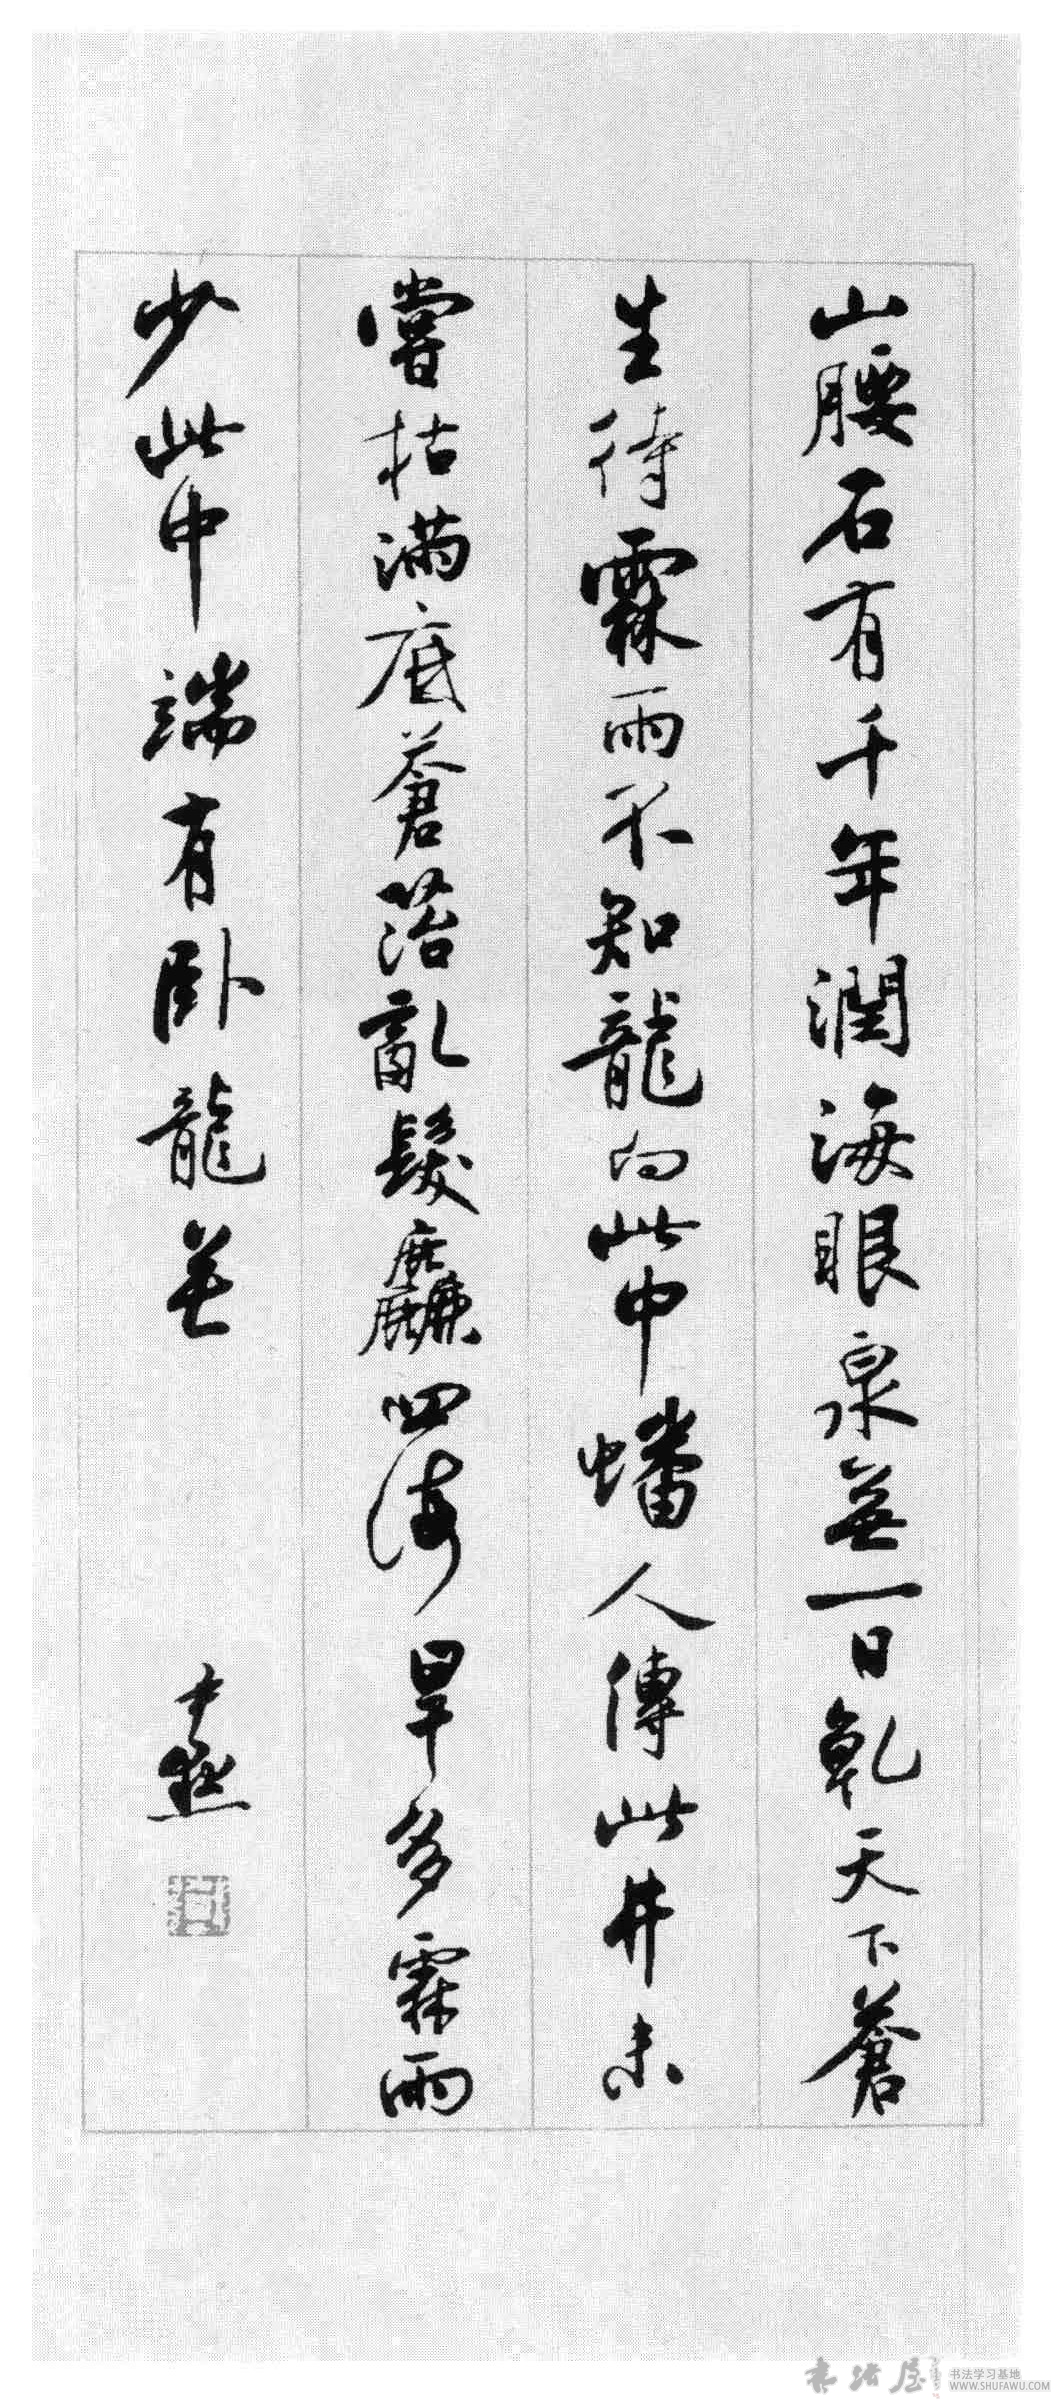 山腰石有千年潤海眼泉無一日乾天下蒼
生待霖雨不知龍向此中蟠人傳此井未
嘗枯滿底蒼苔亂髮麤四海旱多霖雨
少此中端有卧龍無
尹默
书法屋
书法学习基地
WWW.SHUFAWU.COM